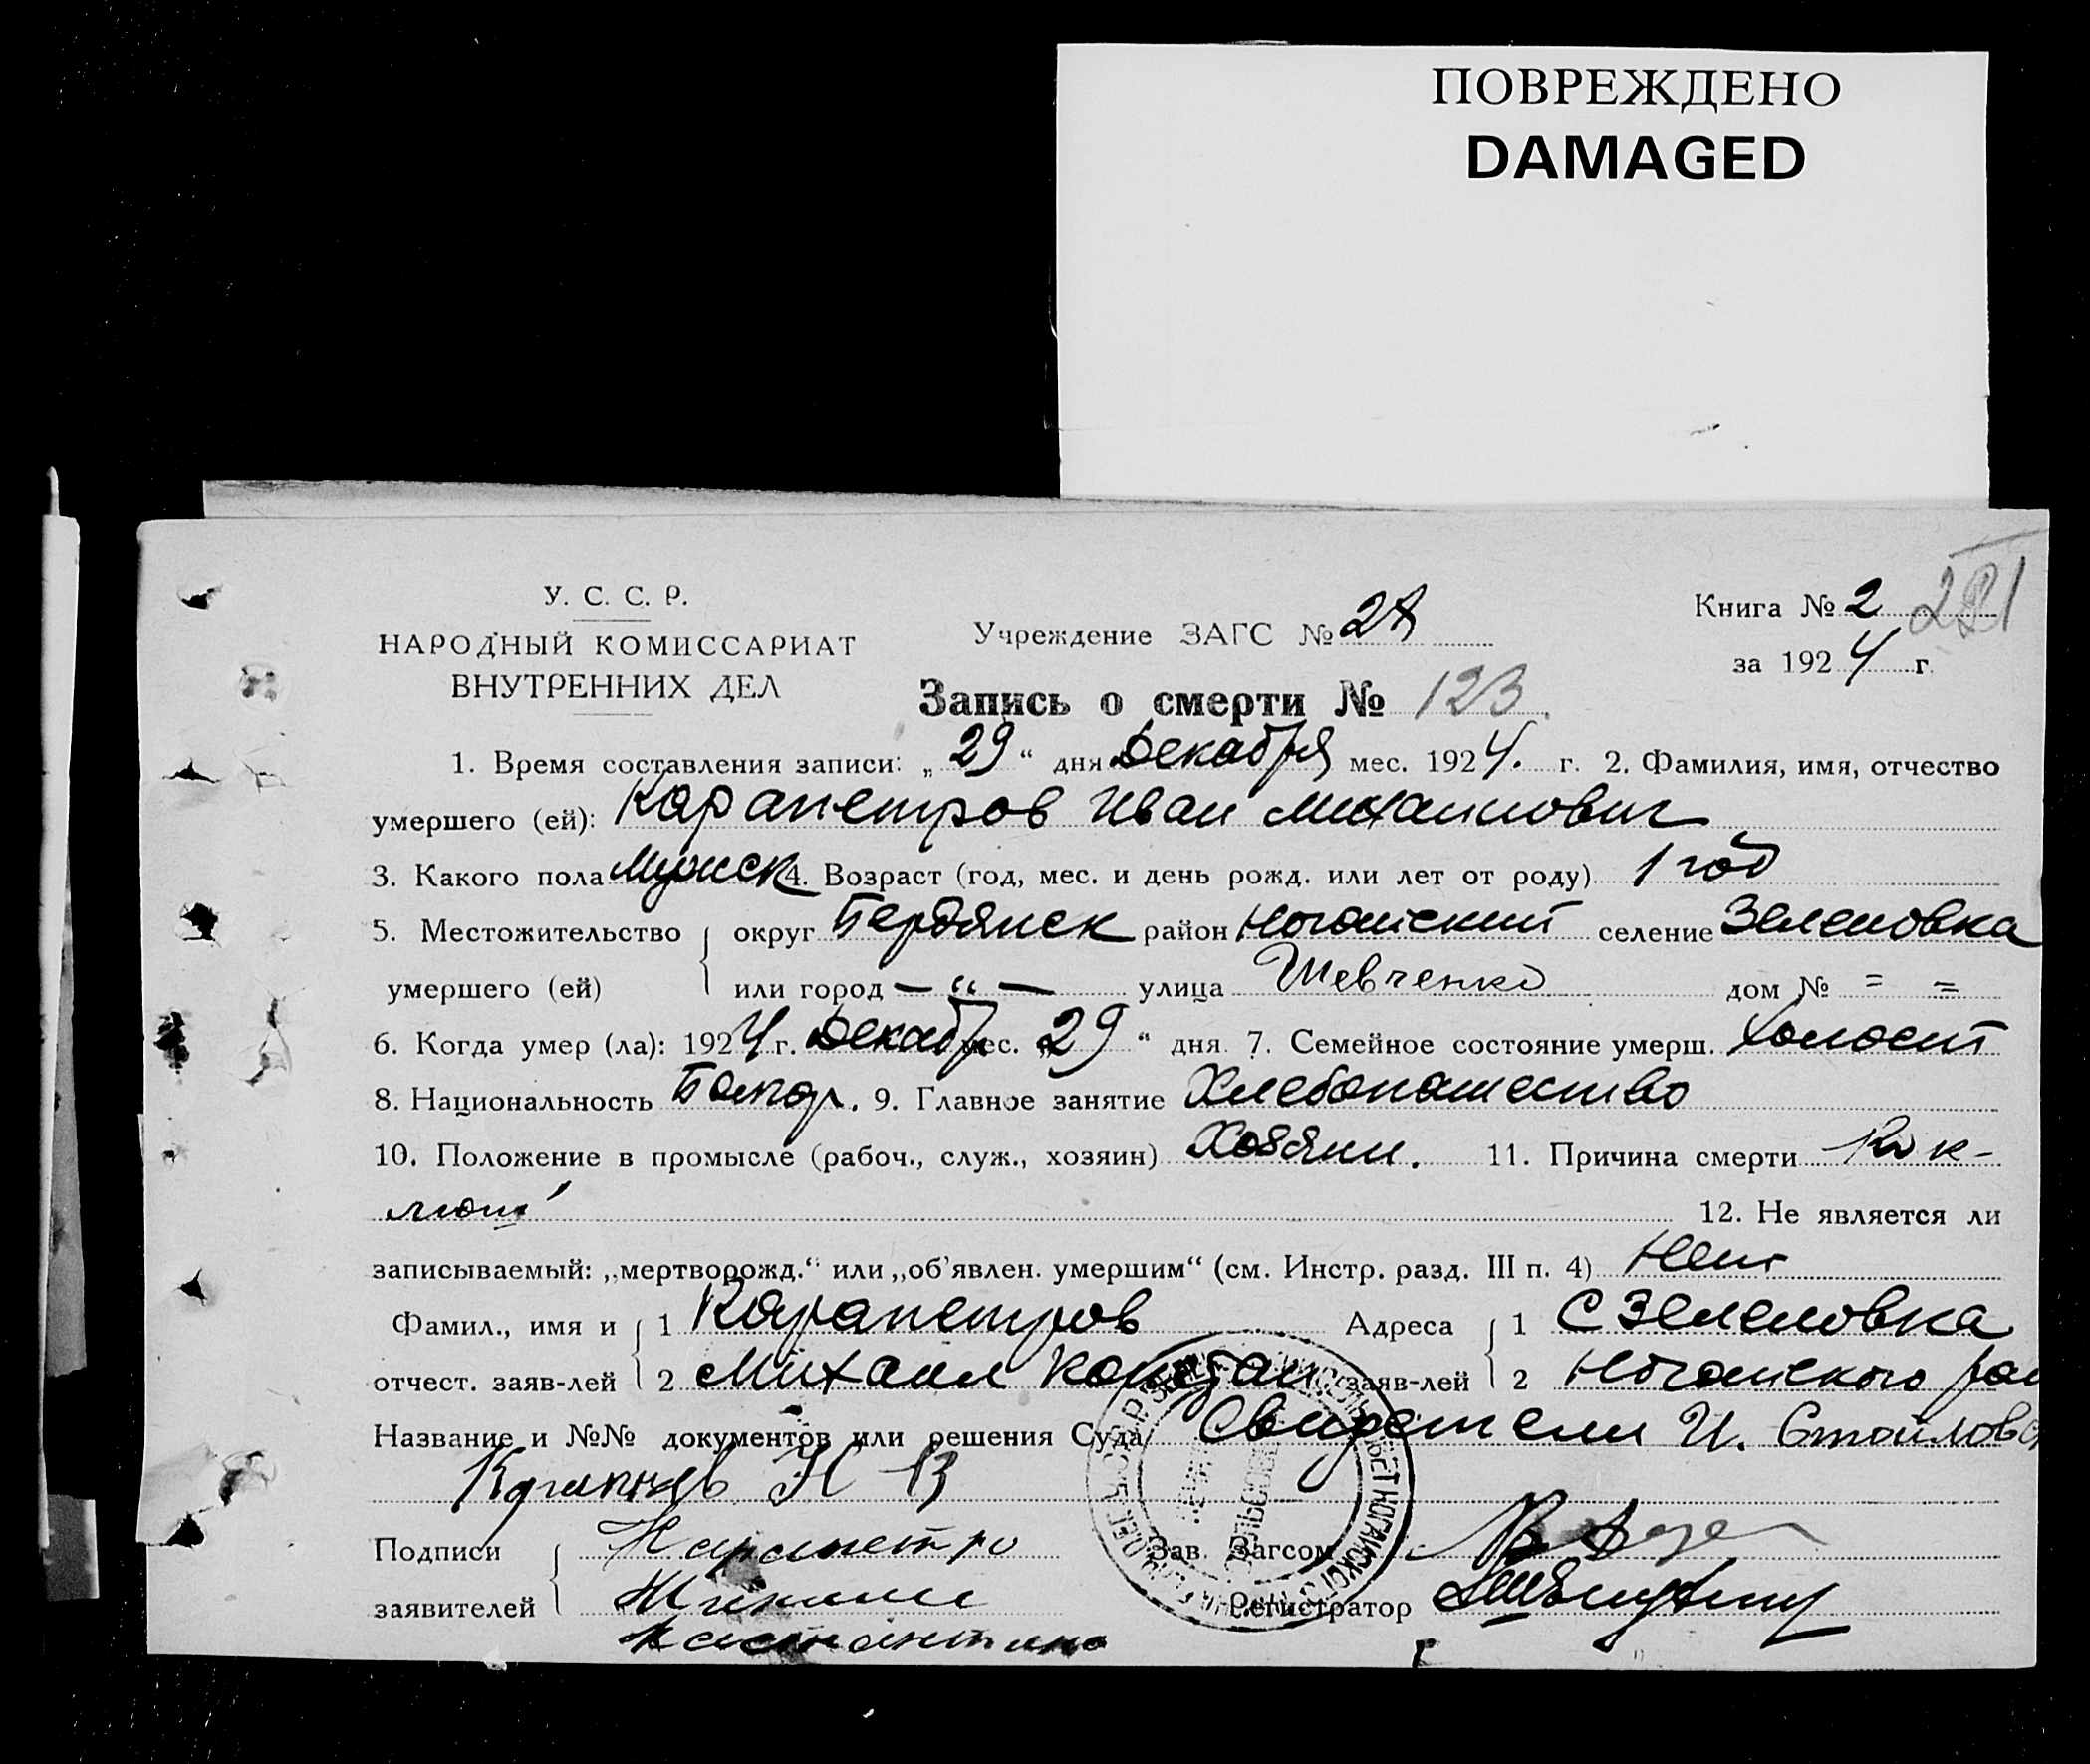 ПОВРЕЖДЕНО
DAMAGED
У. С. С. Р.
НАРОДНЫЙ КОМИССАРИАТ
ВНУТРЕННИХ ДЕЛ
Учреждение ЗАГС № 28
Книга № 2
за 1924 г.
Запись о смерти № 123
1. Время составления записи: „29“ дня Декабря мес. 1924. г. 2. Фамилия, имя, отчество
умершего (ей): Карапетров Иван Михаилович
3. Какого пола Мужск 4. Возраст (год, мес. и день рожд. или лет от роду) 1 год
5. Местожительство округ Бердянск район Ногайский селение Зеленовка
умершего (ей) или город — „ — улица Шевченко дом № = =
6. Когда умер (ла): 1924 г. Декабр мес. „29“ дня 7. Семейное состояние умерш. Холост
8. Национальность Болгар. 9. Главное занятие Хлебопашество
10. Положение в промысле (рабоч., служ., хозяин) Хозяин. 11. Причина смерти Кок-
люш
12. Не является ли
записываемый: „мертворожд.“ или „об'явлен. умершим“ (см. Инстр. разд. III п. 4) Нет
Фамил., имя и 1 Карапетров Адреса 1 С Зеленовка
отчест. заяв-лей 2 Михаил Констан заяв-лей 2 Ногайского рай
Название и №№ документов или решения Суда Свидетели И. Стоилов
Н В
Подписи Карапетро Зав. Загсом
заявителей Михаил Регистратор
Костантино